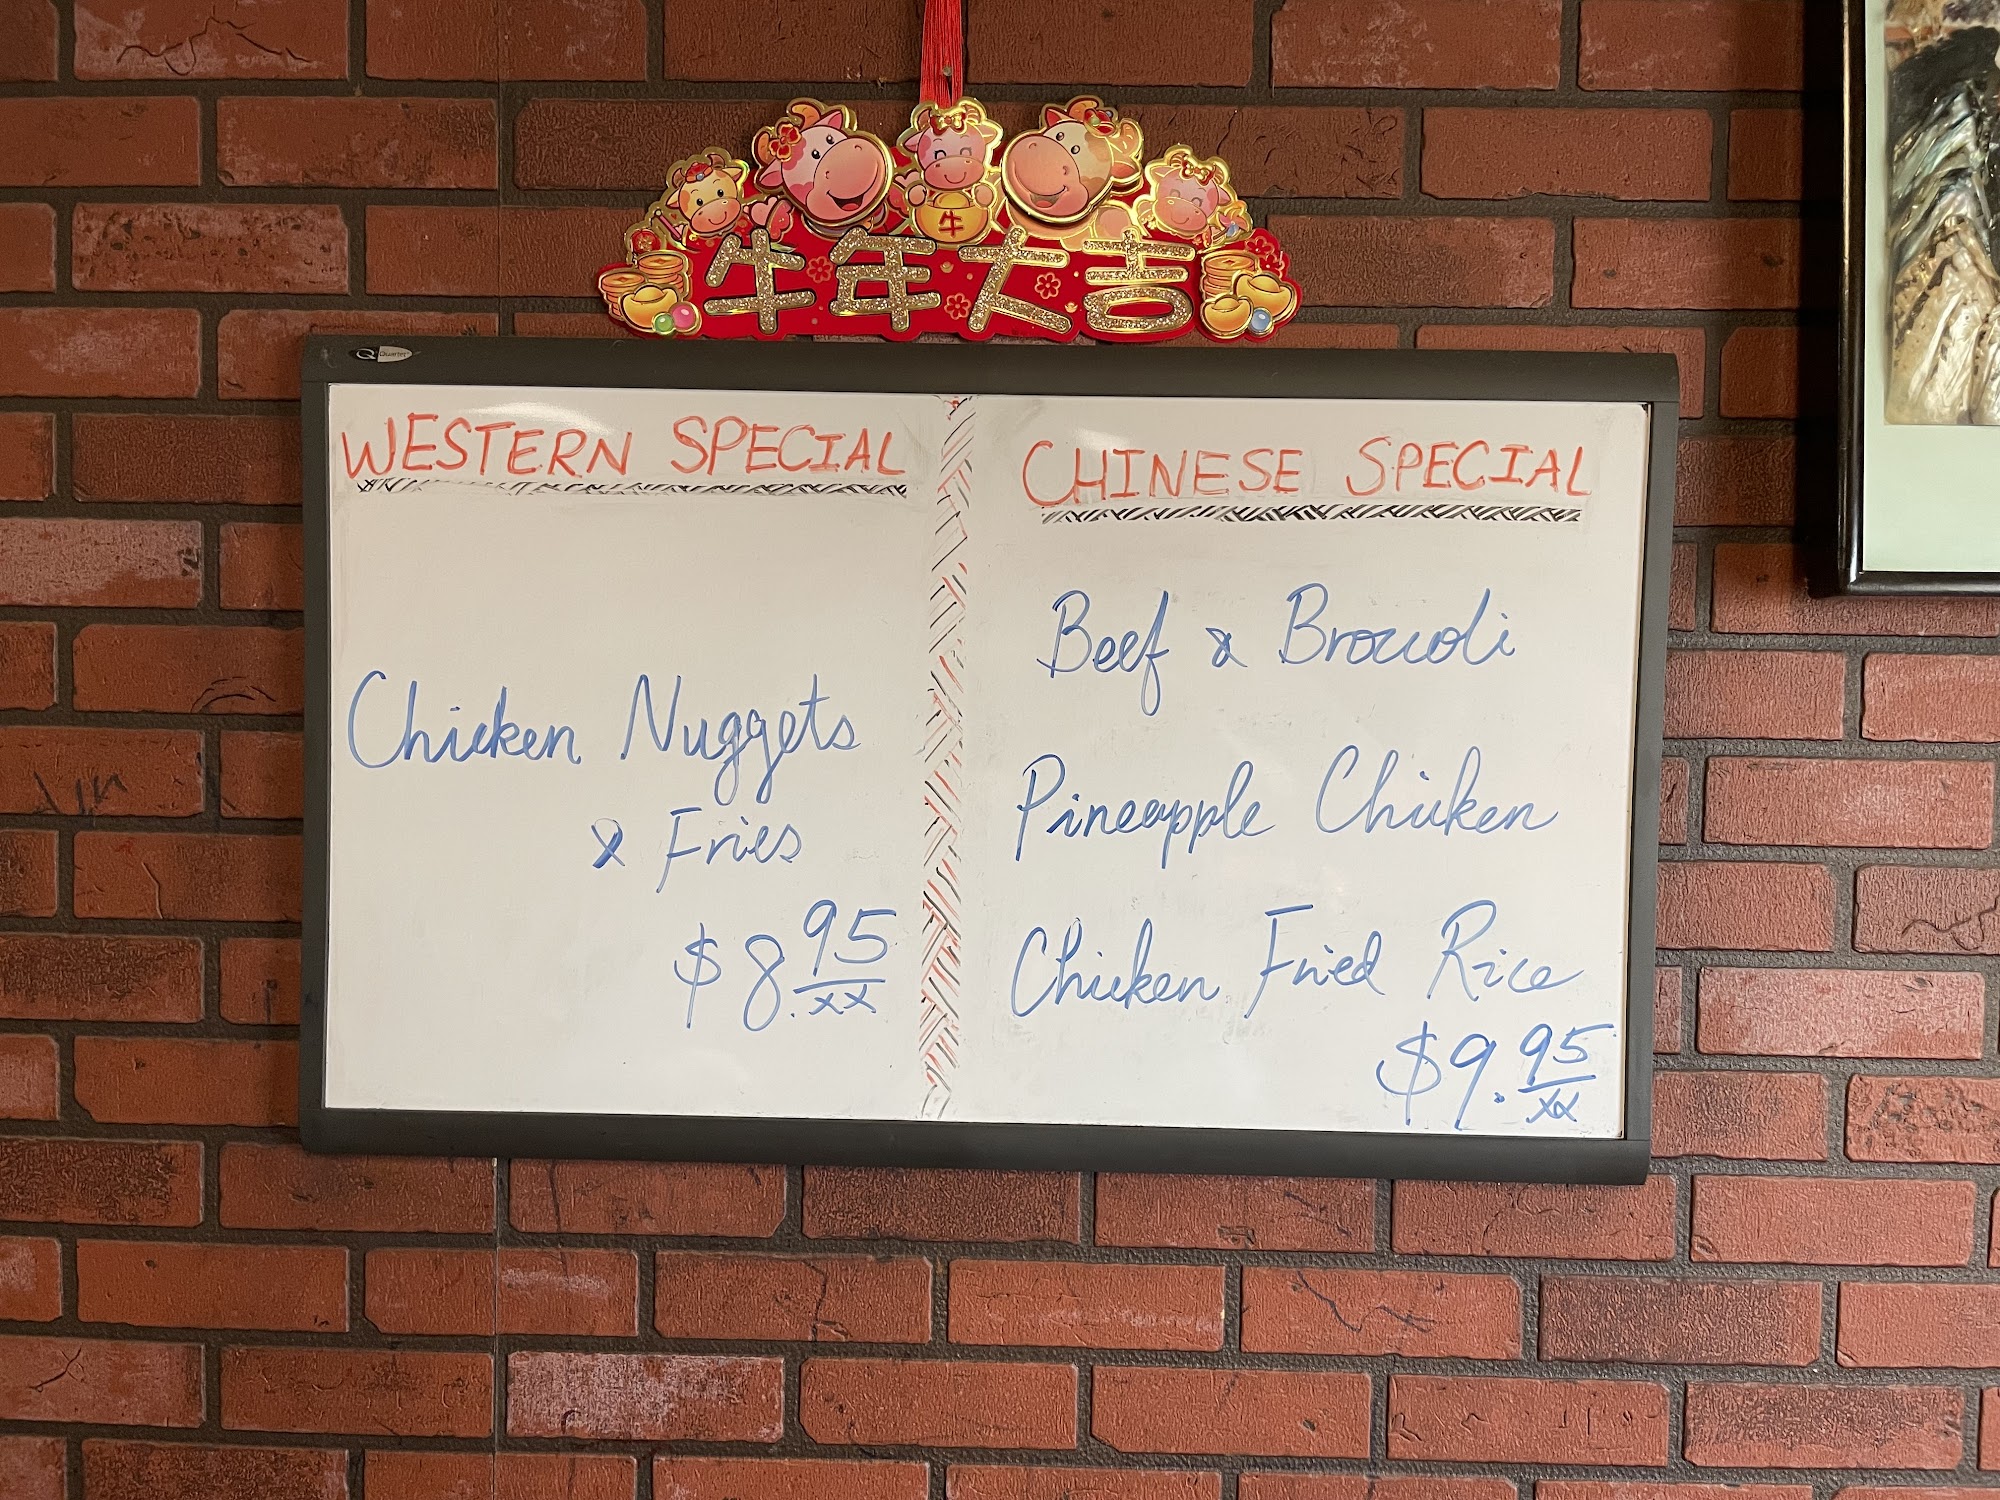 牛
牛年大吉
Quartet
WESTERN SPECIAL
Chicken Nuggets
& Fries
$8.95/xx
CHINESE SPECIAL
Beef & Broccoli
Pineapple Chicken
Chicken Fried Rice
$9.95/xx